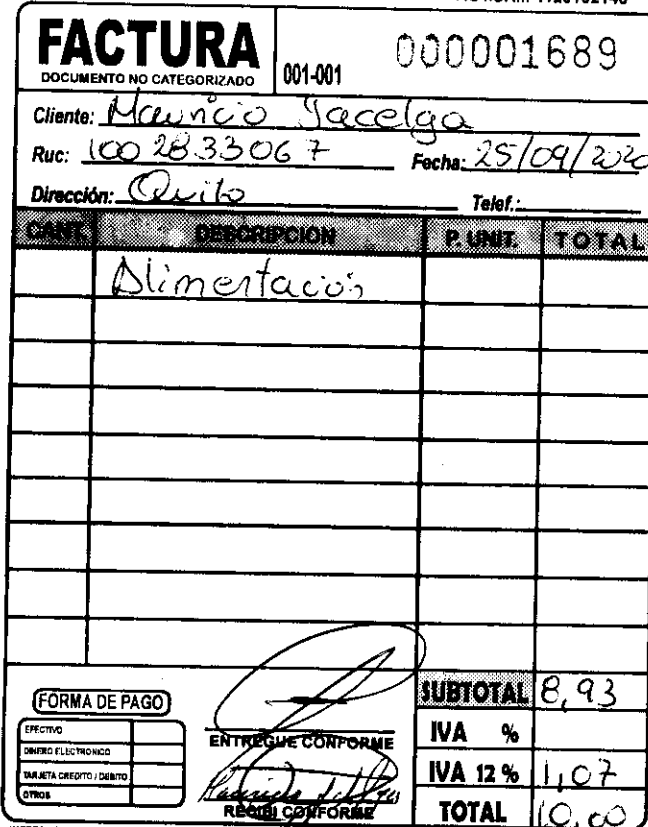 FACTURA
DOCUMENTO NO CATEGORIZADO
001-001
000001689
Cliente: Mauricio Jacelga
Ruc: 1002833067 Fecha: 25/09/2020
Dirección: Quito Telef.:
CANT. DESCRIPCION P. UNIT. TOTAL
Alimentación
FORMA DE PAGO
EFECTIVO
DINERO ELECTRONICO
TARJETA CREDITO / DEBITO
OTROS
ENTREGUE CONFORME
RECIBI CONFORME
SUBTOTAL 8,93
IVA %
IVA 12 % 1,07
TOTAL 10,00